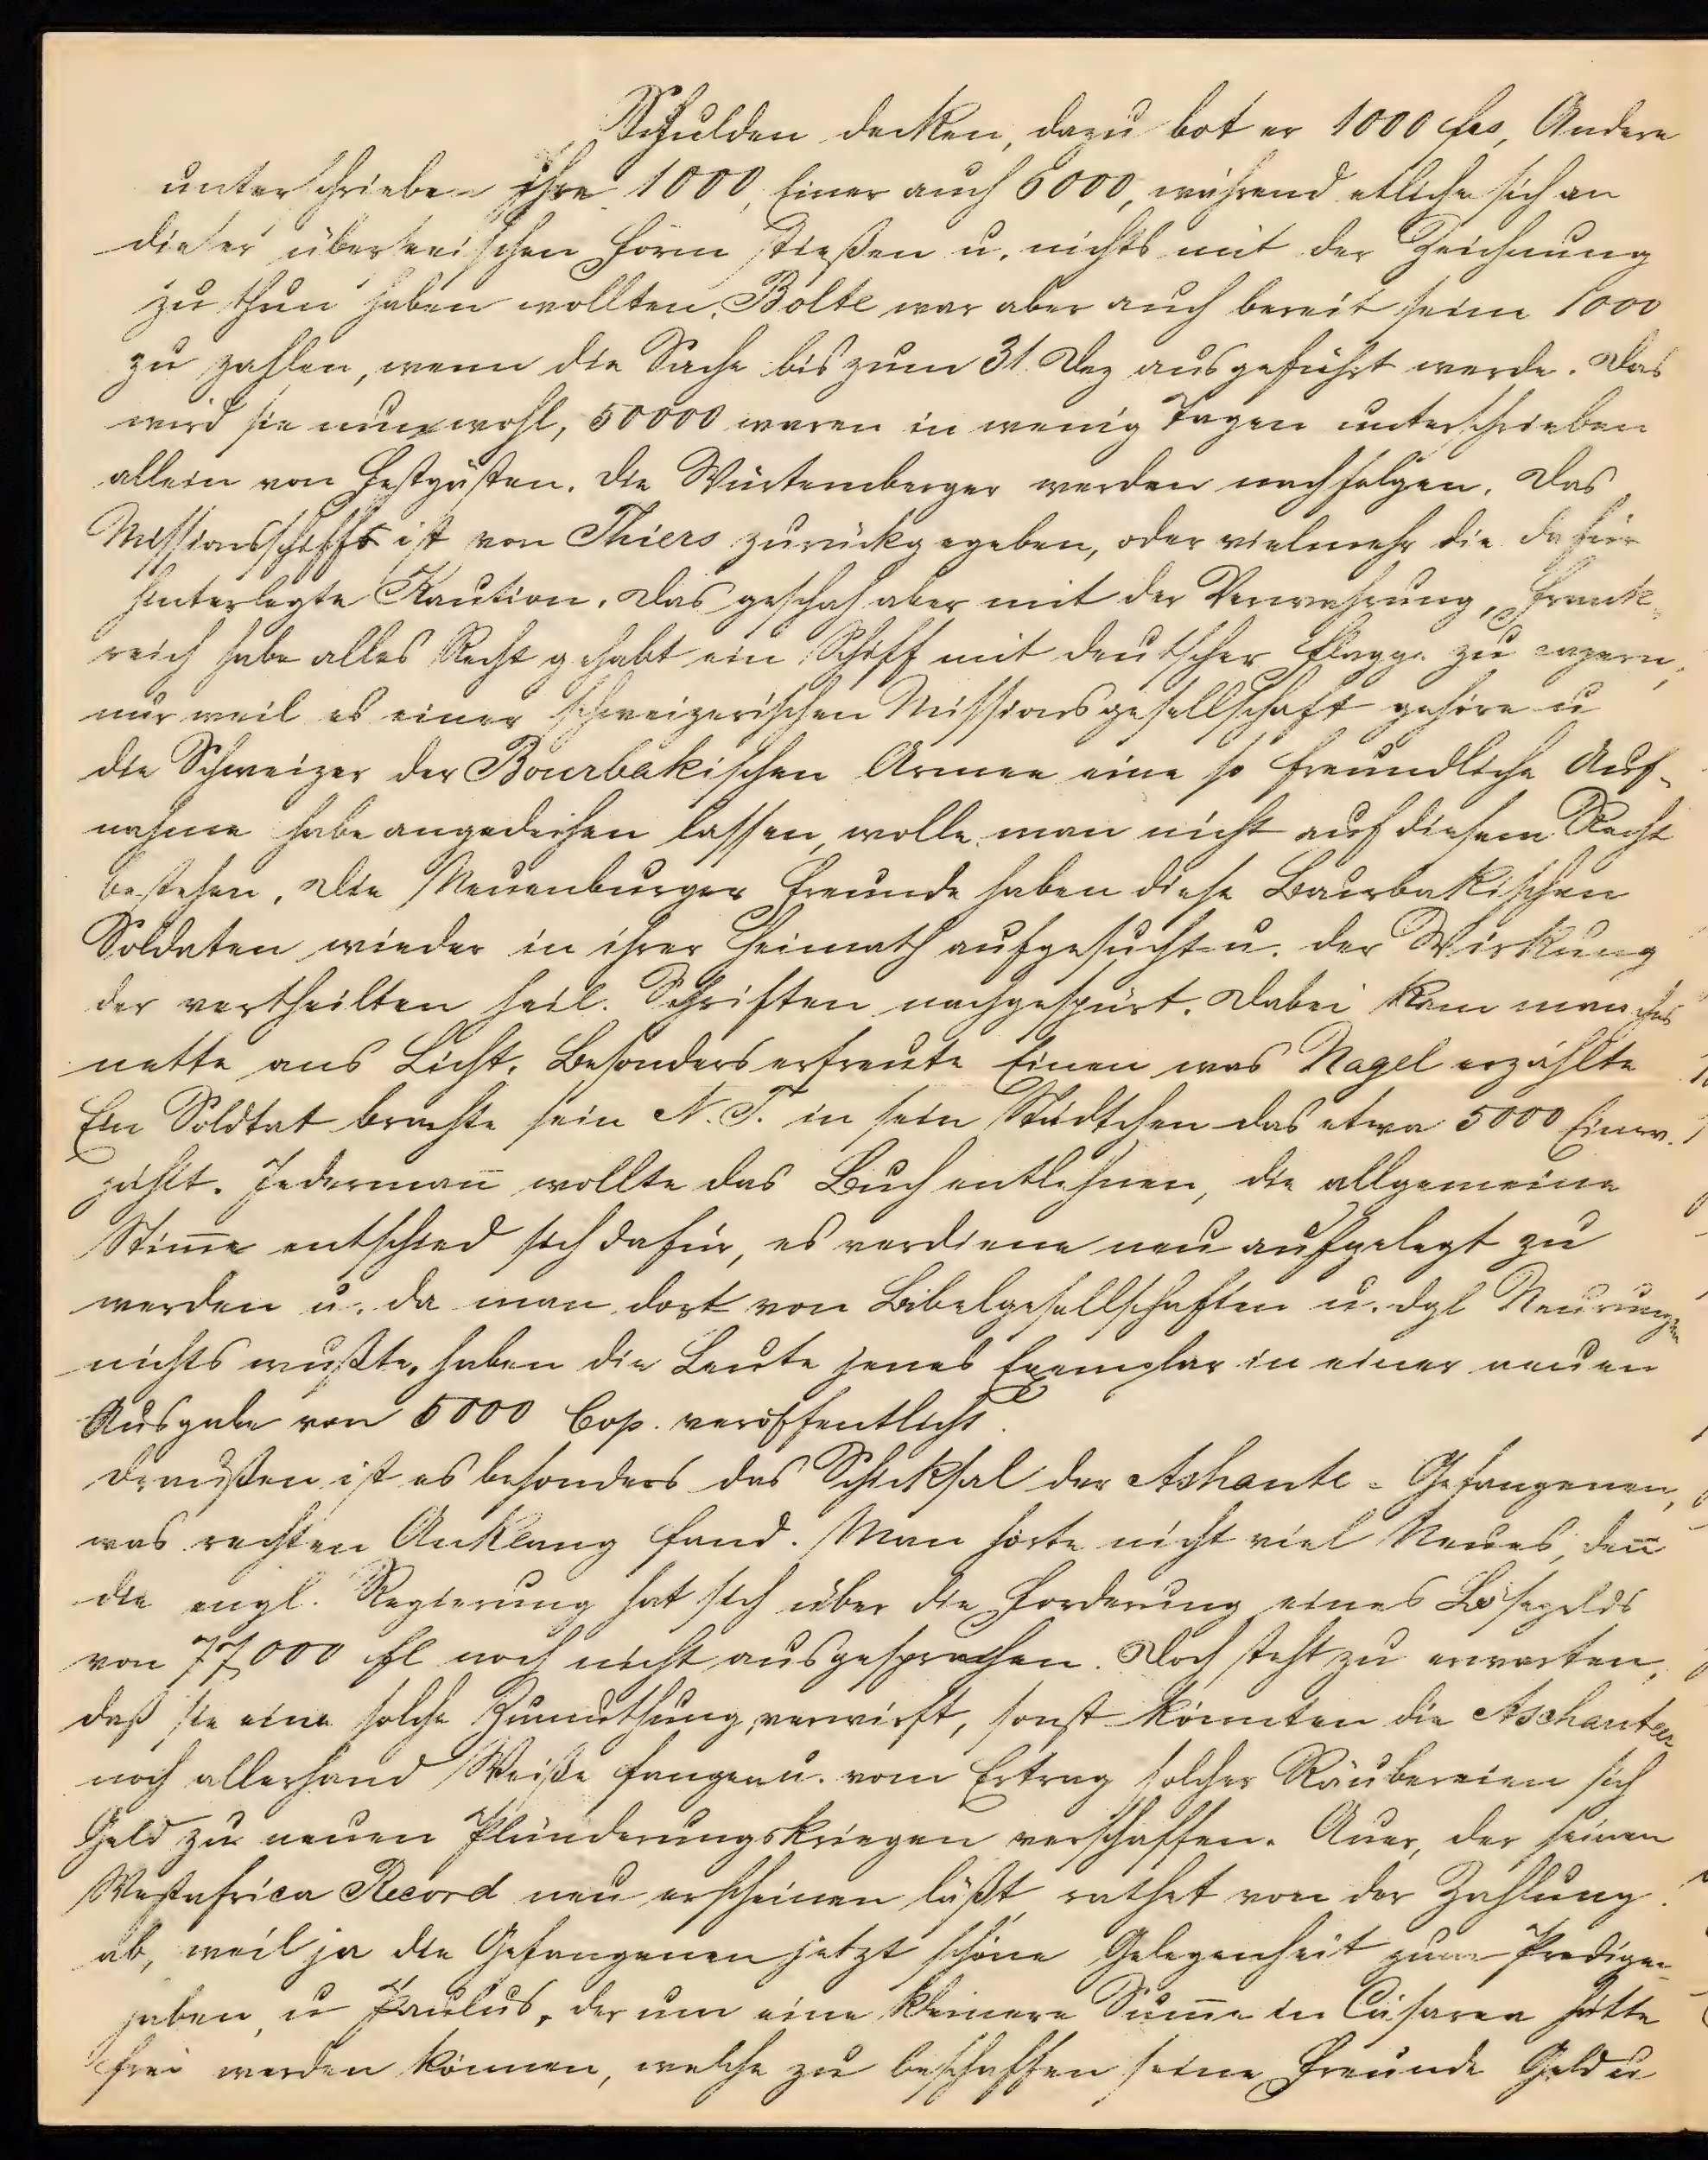 Schulden decken, dazu bot er 1000 frs, Andere
unterschrieben ihre 1000, Einer auch 6000, während etliche sich an
dieser überseeischen Form stießen u. nichts mit der Zeichnung
zu thun haben wollten. Bolte war aber auch bereit seine 1000
zu zahlen, wenn die Sache bis zum 31. Dez ausgeführt werde. Das
wird sie nun wohl, 50000 waren in wenig Tagen unterschrieben
allein von Festgästen. Die Würtemberger werden nachfolgen. Das
Missionsschiff ist von Thiers zurückgegeben, oder vielmehr die dafür
hinterlegte Kaution. Das geschah aber mit der Verwahrung, Frank-
reich habe alles Recht gehabt ein Schiff mit deutscher Flagge zu capern,
nur weil es einer schweizerischen Missionsgesellschaft gehöre u
die Schweizer der Bourbakischen Armee eine so freundliche Auf-
nahme habe angedeihen lassen, wolle man nicht auf diesem Recht
bestehen. Die Neuenburger Freunde haben diese Bourbakischen
Soldaten wieder in ihrer Heimath aufgesucht u. der Wirkung
der vertheilten heil. Schriften nachgespürt. Dabei kam manches
nette ans Licht. Besonders erfreute Einen was Nagel erzählte
Ein Soldtat brachte sein N. T. in sein Städtchen das etwa 5000 Einw.
zählt. Jedermañ wollte das Buch entlehnen, die allgemeine
Stim̄e entschied sich dafür, es verdiene neu aufgelegt zu
werden u. da man dort von Bibelgesellschaften u. dgl Neurungen
nichts wußte, haben die Leute jenes Exemplar in einer neuen
Ausgabe von 5000 Cop. veröffentlicht.
Draußen ist es besonders das Schicksal der Ashante-Gefangenen,
was rechten Anklang fand. Man hörte nicht viel Neues, deñ
die engl. Regierung hat sich über die Forderung eines Lösegelds
von 77,000 fl noch nicht ausgesprochen. Doch steht zu erwarten,
daß sie eine solche Zumuthung verwirft, sonst könnten die Aschanteer
noch allerhand Weiße fangen u. vom Ertrag solcher Räubereien sich
Geld zu neuen Plünderungskriegen verschaffen. Auer, der seinen
Westafrica Record neu erscheinen läßt, rathet von der Zahlung
ab, weil ja die Gefangenen jetzt schöne Gelegenheit zum Predigen
haben, u Paulus, der um eine kleinere Sum̄e in Cäsarea hätte
frei werden können, welche zu beschaffen seine Freunde Geld u